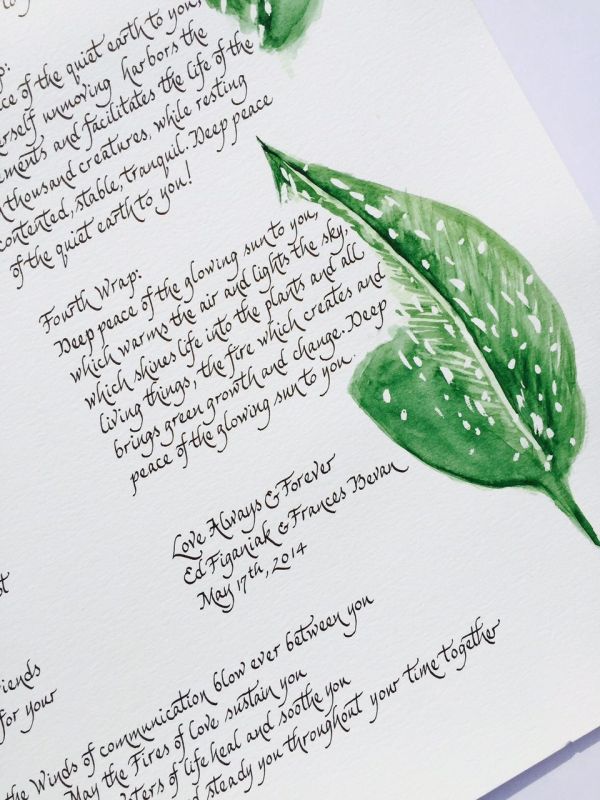 of the quiet earth to you,
herself unmoving harbors the
and facilitates the life of the
thousand creatures, while resting
contented, stable, tranquil. Deep peace
of the quiet earth to you!
Fourth Wrap:
Deep peace of the glowing sun to you,
which warms the air and lights the sky,
which shines life into the plants and all
living things, the fire which creates and
brings green growth and change. Deep
peace of the glowing sun to you.
Love Always & Forever
Ed Figaniak & Frances Bevan
May 17th, 2014
for your
the Winds of communication blow ever between you
May the Fires of love sustain you
of life heal and soothe you
steady you throughout your time together